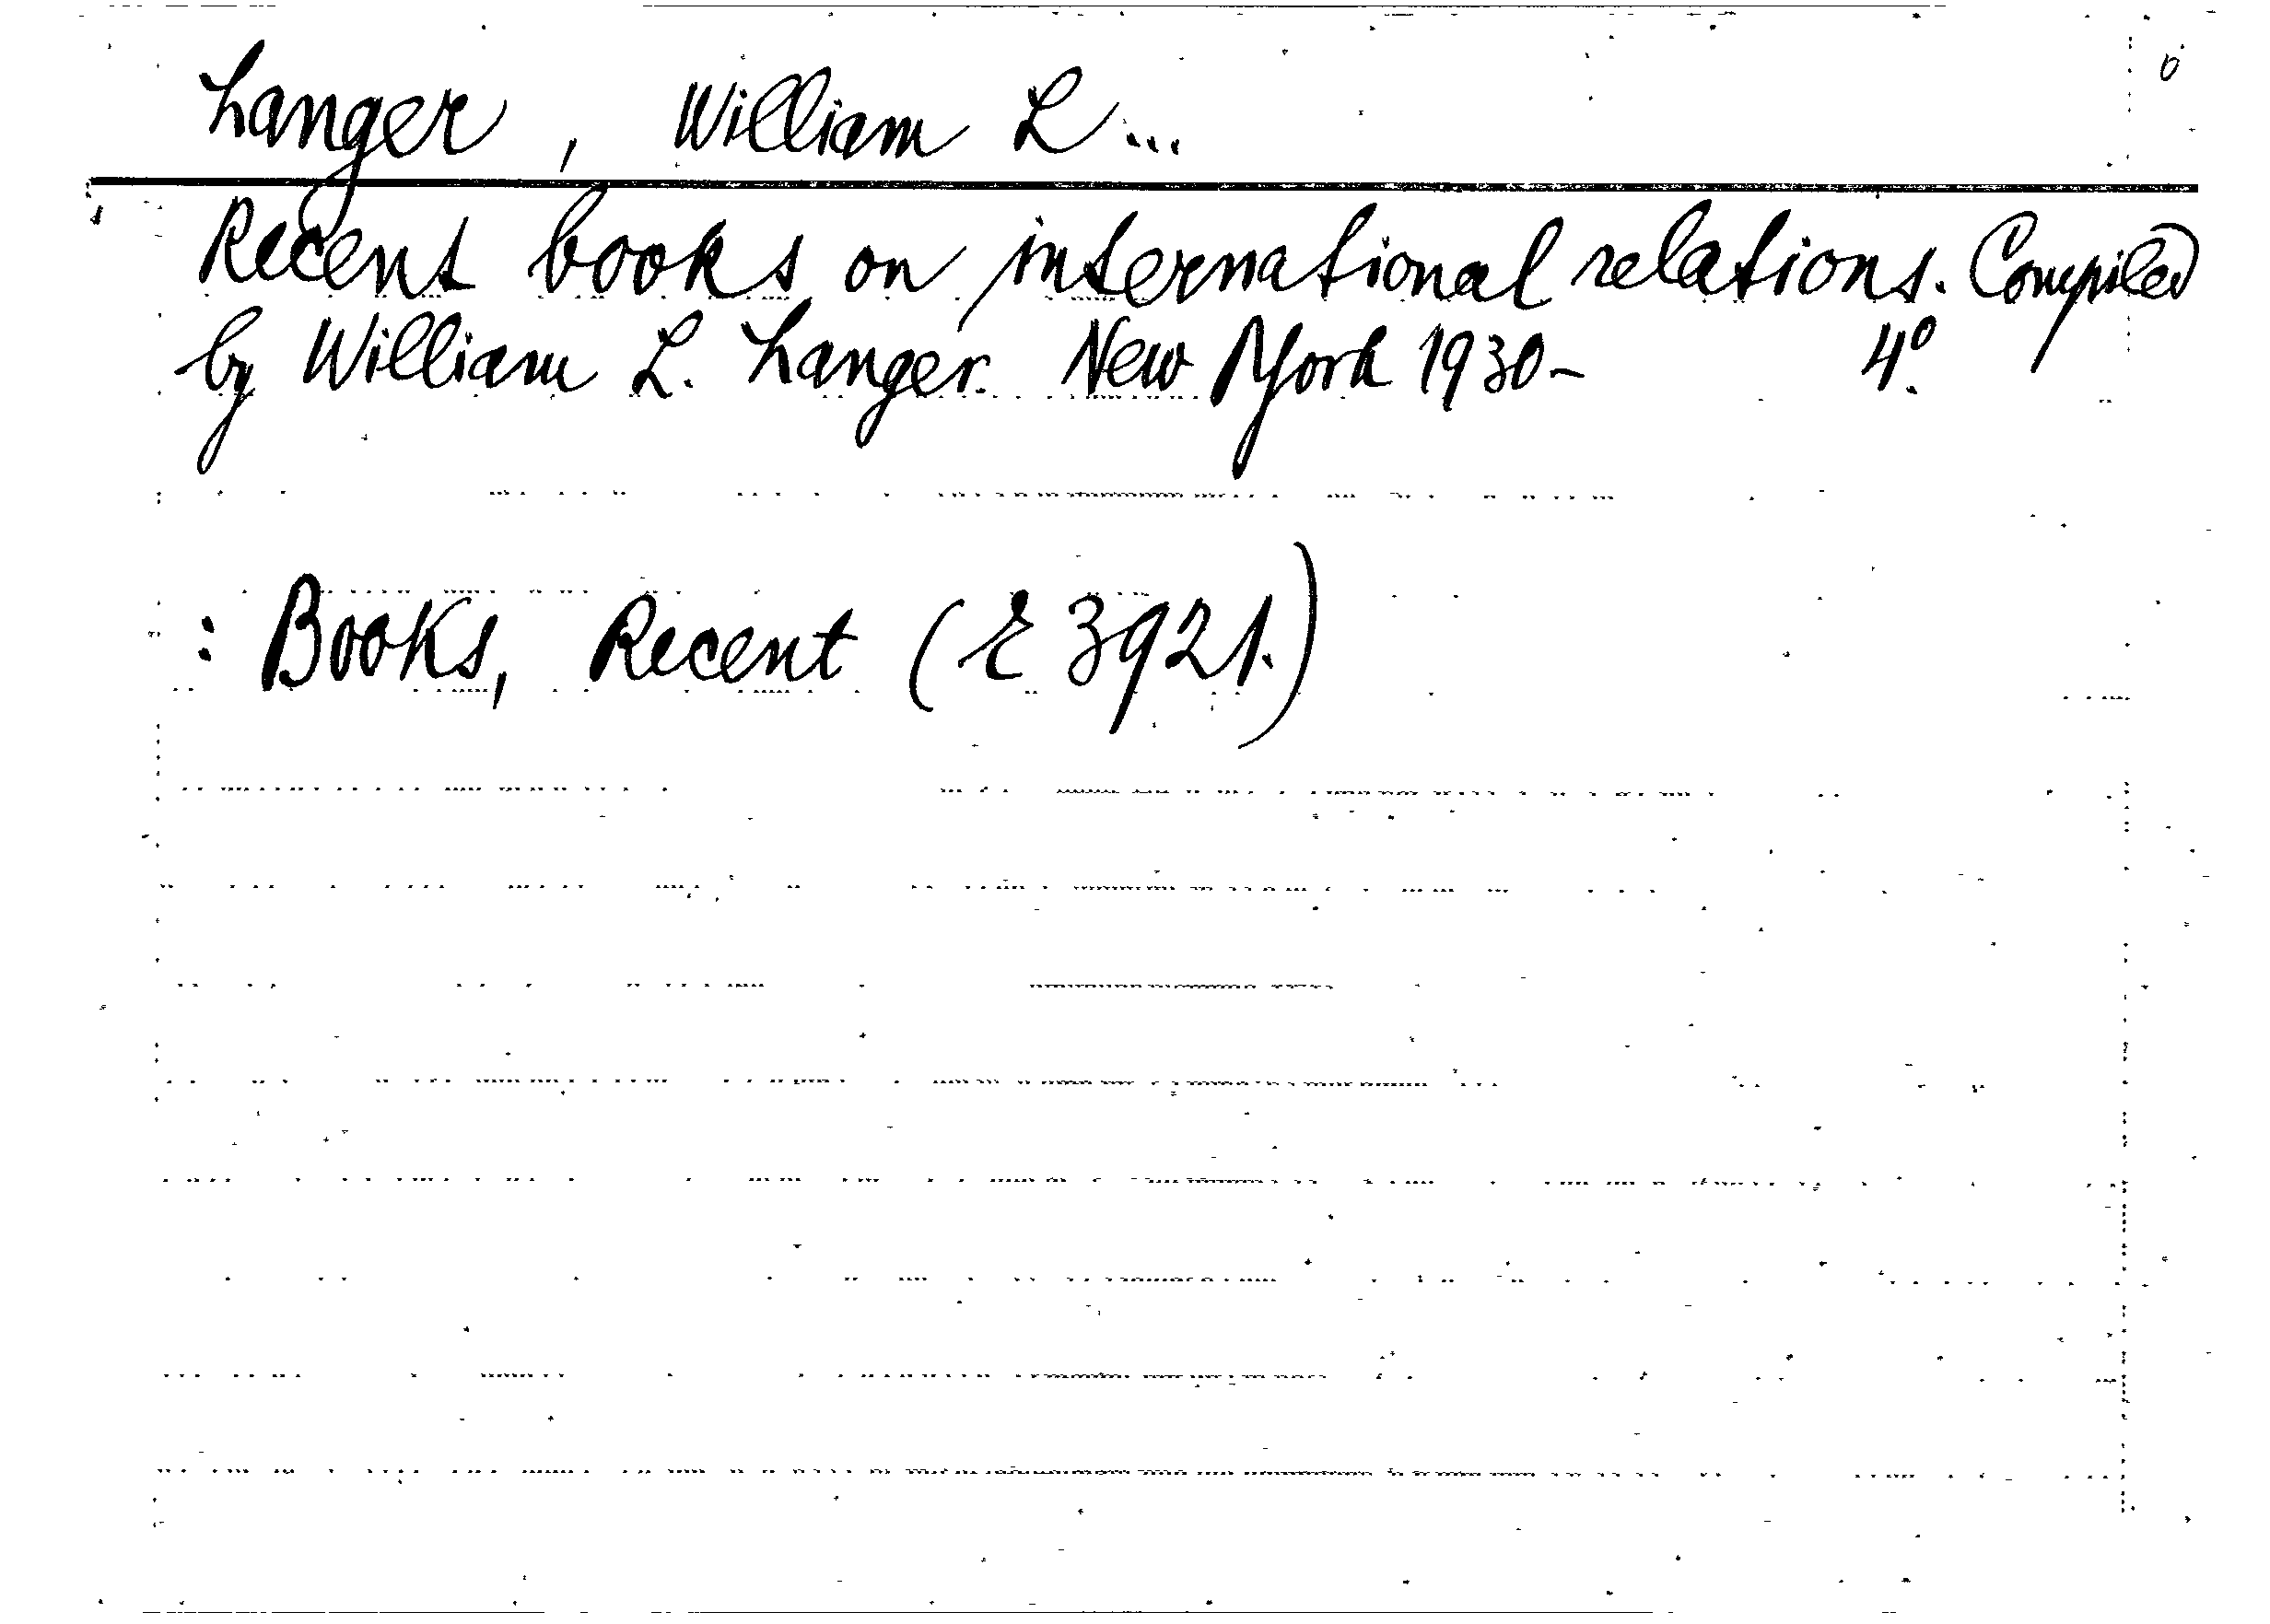 Langer, William L...
Recent books on international relations. Compiled
by William L. Langer. New York 1930- 4º.
: Books, Recent (E 3921.)